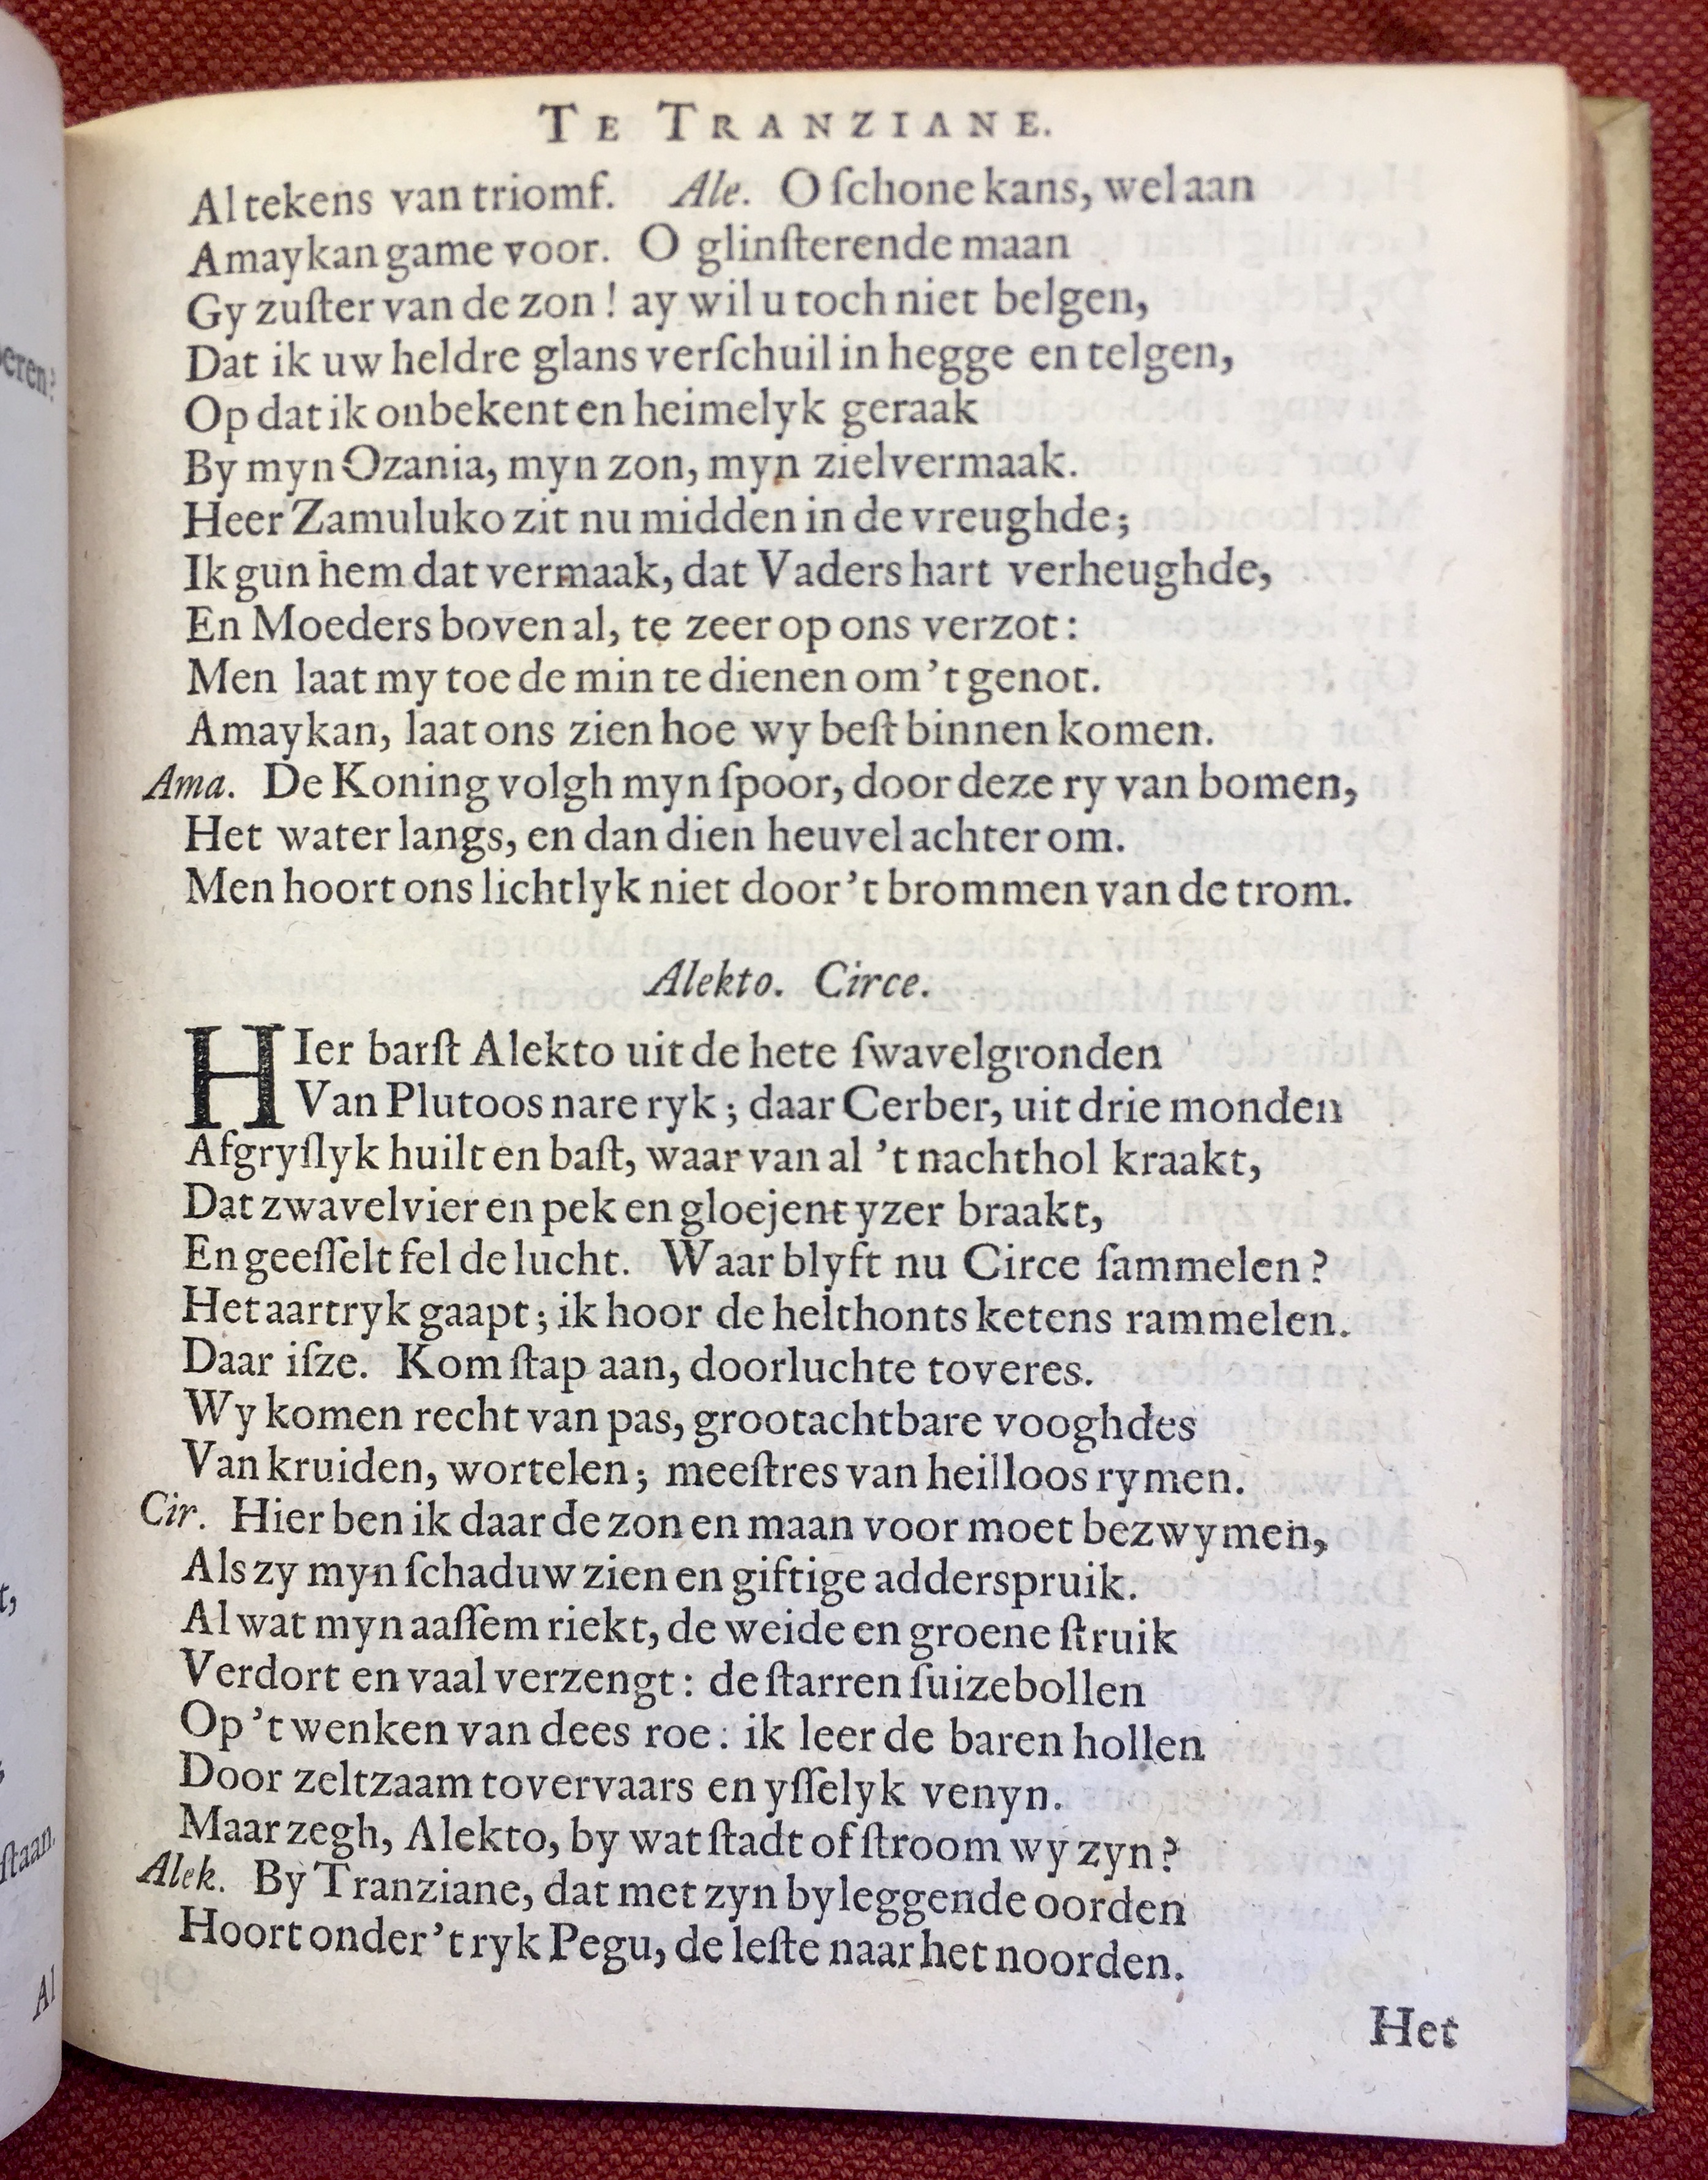 TE TRANZIANE.
Al tekens van triomf. Ale. O ſchone kans, wel aan
Amaykan game voor. O glinſterende maan
Gy zuſter van de zon! ay wil u toch niet belgen,
Dat ik uw heldre glans verſchuil in hegge en telgen,
Op dat ik onbekent en heimelyk geraak
By myn Ozania, myn zon, myn zielvermaak.
Heer Zamuluko zit nu midden in de vreughde;
Ik gun hem dat vermaak, dat Vaders hart verheughde,
En Moeders boven al, te zeer op ons verzot:
Men laat my toe de min te dienen om 't genot.
Amaykan, laat ons zien hoe wy beſt binnen komen.
Ama. De Koning volgh myn ſpoor, door deze ry van bomen,
Het water langs, en dan dien heuvel achter om.
Men hoort ons lichtlyk niet door 't brommen van de trom.
Alekto. Circe.
HIer barſt Alekto uit de hete ſwavelgronden
Van Plutoos nare ryk; daar Cerber, uit drie monden
Afgryſlyk huilt en baſt, waar van al 't nachthol kraakt,
Dat zwavelvier en pek en gloejent yzer braakt,
En geeſſelt fel de lucht. Waar blyft nu Circe ſammelen?
Het aartryk gaapt; ik hoor de helthonts ketens rammelen.
Daar iſze. Kom ſtap aan, doorluchte toveres.
Wy komen recht van pas, grootachtbare vooghdes
Van kruiden, wortelen; meeſtres van heilloos rymen.
Cir. Hier ben ik daar de zon en maan voor moet bezwymen,
Als zy myn ſchaduw zien en giftige adderspruik.
Al wat myn aaſſem riekt, de weide en groene ſtruik
Verdort en vaal verzengt: de ſtarren ſuizebollen
Op 't wenken van dees roe: ik leer de baren hollen
Door zeltzaam tovervaars en yſſelyk venyn.
Maar zegh, Alekto, by wat ſtadt of ſtroom wy zyn?
Alek. By Tranziane, dat met zyn byleggende oorden
Hoort onder 't ryk Pegu, de leſte naar het noorden.
Het